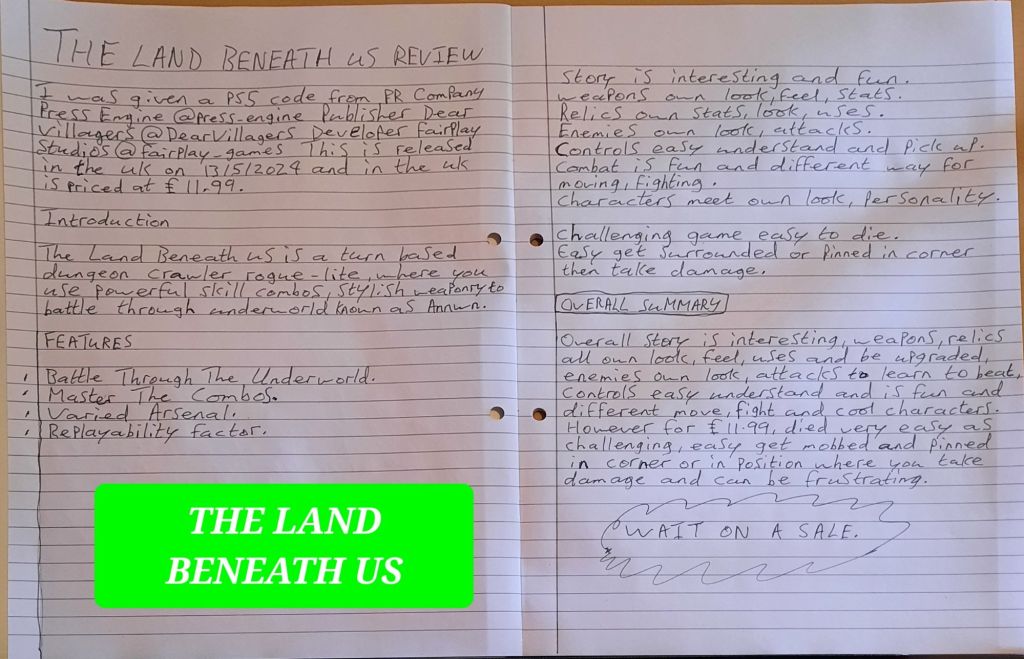 THE LAND BENEATH US REVIEW
I was given a PS5 code from PR Company
Press Engine @Press-engine Publisher Dear
Villagers @DearVillagers Developer FairPlay
Studios @fairplay_games This is released
in the uk on 13/5/2024 and in the uk
is priced at £11.99.
Introduction
The Land Beneath us is a turn based
dungeon crawler rogue-lite, where you
use powerful skill combos, stylish weaponry to
battle through underworld known as Annwn.
FEATURES
Battle Through The Underworld.
Master The Combos.
Varied Arsenal.
Replayability factor.
THE LAND
BENEATH US
Story is interesting and fun.
weapons own look, feel, stats.
Relics own stats, look, uses.
Enemies own look, attacks.
Controls easy understand and pick up.
Combat is fun and different way for
moving, fighting.
Characters meet own look, personality.
Challenging game easy to die.
Easy get surrounded or pinned in corner
then take damage.
OVERALL SUMMARY
Overall story is interesting, weapons, relics
all own look, feel, uses and be upgraded,
enemies own look, attacks to learn to beat,
Controls easy understand and is fun and
different move, fight and cool characters.
However for £11.99, died very easy as
challenging, easy get mobbed and pinned
in corner or in position where you take
damage and can be frustrating.
WAIT ON A SALE.